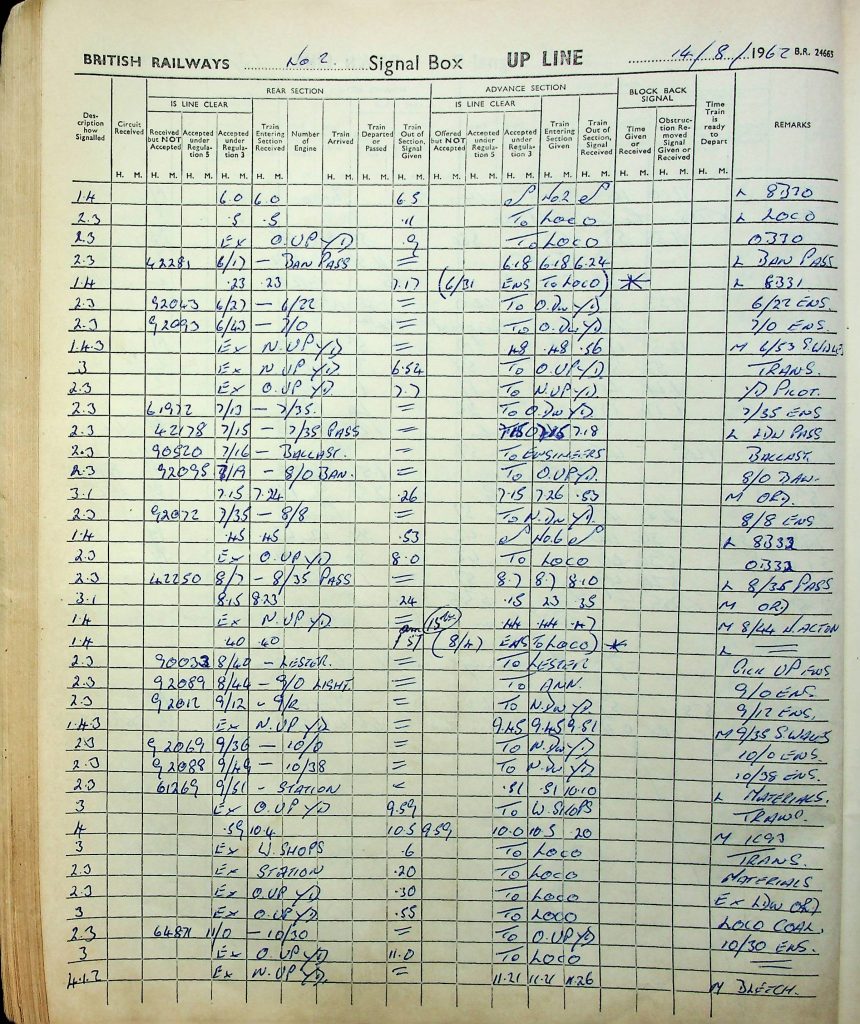 BRITISH RAILWAYS No 2. Signal Box UP LINE 14/8/1962 B.R. 24663
REAR SECTION ADVANCE SECTION BLOCK BACK SIGNAL
IS LINE CLEAR IS LINE CLEAR
Description how Signalled Circuit Received Received but NOT Accepted Accepted under Regulation 5 Accepted under Regulation 3 Train Entering Section Received Number of Engine Train Arrived Train Departed or Passed Train Out of Section, Signal Given Offered but NOT Accepted Accepted under Regulation 5 Accepted under Regulation 3 Train Entering Section Given Train Out of Section, Signal Received Time Given or Received Obstruction Removed Signal Given or Received Time Train is ready to Depart REMARKS
H. M. H. M. H. M. H. M. H. M. H. M. H. M. H. M. H. M. H. M. H. M. H. M. H. M. H. M. H. M. H. M.
1.4 6.0 6.0 6.5 No2 L 8330
2.3 .5 .5 .11 To LOCO L LOCO
2.3 Ex O.UP YD .9 To LOCO 0330
2.3 42281 6/17 — BAN PASS = 6.18 6.18 6.24 L BAN PASS
1.4 .23 .23 7.17 (6/31 ENS To LOCO) * L 8331
2.3 92043 6/27 — 6/22 = To O.DW YD 6/22 ENS.
2.3 92093 6/43 — 7/0 = To O.DW YD 7/0 ENS.
1.4.3 Ex N.UP YD = 48 .48 .56 M 6/53
3 Ex N UP YD 6.54 To O.UP YD TRANS.
2.3 Ex O.UP YD 7.7 To N.UP YD YD PILOT.
2.3 61972 7/13 — 7/35. = To O.DW YD 7/35 ENS
2.3 42178 7/15 — 7/35 PASS = 7.18 L LDN PASS
2.3 90520 7/16 — BALLAST. = To ENGINEERS BALLAST.
2.3 92095 7/19 — 8/0 BAN. = To O.UP YD. 8/0 BAN.
3.1 7.15 7.24 .26 7.15 7.26 .53 M ORD.
2.3 92072 7/35 — 8/8 = To N.DW YD. 8/8 ENS
1.4 .45 .45 .53 No.6 L 8332
2.3 Ex O.UP YD 8.0 To LOCO 0332
2.3 42250 8/7 — 8/35 PASS = 8.7 8.7 8.10 L 8/35 PASS
3.1 8.15 8.23 24 .15 23 .35 M ORD
1.4 Ex N.UP YD = .44 .44 .47 M 8/44 N.ACTON
1.4 .40 .40 (8/47 ENS To LOCO) * L =
2.3 90033 8/40 — LESTER. = To LESTER PICK UP ENS
2.3 92089 8/44 — 9/0 LIGHT. = To ANN. 9/0 ENS.
2.3 92012 9/12 — = To N.DW YD 9/12 ENS.
1.4.3 Ex N.UP YD = 9.45 9.45 9.51 M 9/35
2.3 92069 9/36 — 10/0 = To N.DW YD 10/0 ENS.
2.3 92088 9/49 — 10/38 = To N.DW YD 10/38 ENS.
2.3 61269 9/51 — STATION .51 .51 10.10 L MATERIALS.
3 Ex O.UP YD 9.59 To W.SHOPS
4 .59 10.4 10.5 9.59 10.0 10.5 .20 M 1C93
3 Ex W.SHOPS .6 To LOCO TRANS.
2.3 Ex STATION .20 To LOCO MATERIALS
2.3 Ex O.UP YD .30 To LOCO Ex LDW ORD
3 Ex O.UP YD .55 To LOCO LOCO COAL.
2.3 64871 11/0 — 10/30 = To O.UP YD 10/30 ENS.
3 Ex O.UP YD 11.0 To LOCO =
4.1.2 Ex N.UP YD. = 11.21 11.21 11.26 M BLETCH.